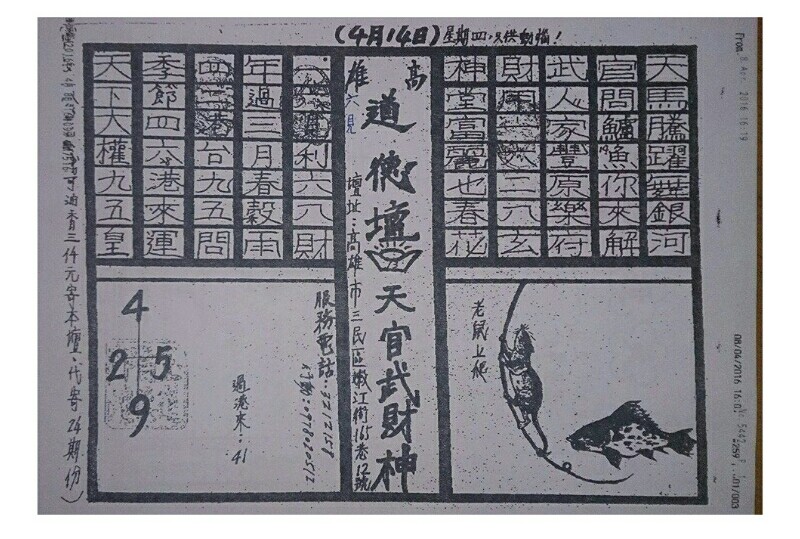 (4月14日)星期四,只供動腦!
From
8 Apr 2016 16:19
天馬騰躍舞銀河
官問鱸漁你來解
武人家豐原樂付
財雨二六玄
神堂富麗也春花
高雄
六現
道德壇 天官武財神
壇址:高雄市三民區嫩江街165巷12號
利六八財
年過三月春穀雨
四二港台九五問
季節四六港來運
天下大權九五皇
老鼠上爬
服務電話:3212158
行動:0978020512
過港來:41
4
2 5
9
油香三仟元寄本壇,代寄24期份)
08/04/2016 16:0
01/003